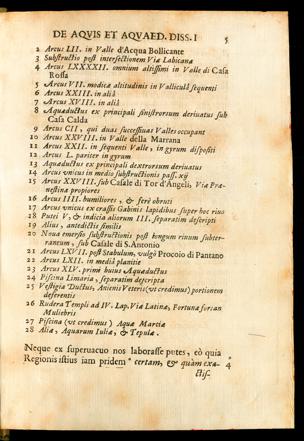 DE AQVIS ET AQVAED. DISS. I 5
2 Arcus LII. in Valle d'Acqua Bollicante
3 Substructio post intersectionem Viæ Labicanæ
4 Arcus LXXXXII. omnium altissimi in Valle di Casa
Rossa
5 Arcus VII. modicæ altitudinis in Valliculâ sequenti
6 Arcus XXIII. in aliâ
7 Arcus XVIII. in aliâ
8 Aquæductus ex principali sinistrorsum deriuatus sub
Casa Calda
9 Arcus CII, qui duas successiuas Valles occupant
10 Arcus XXVIII. in Valle della Marrana
11 Arcus XXII. in sequenti Valle, in gyrum dispositi
12 Arcus L. pariter in gyrum
13 Aquæductus ex principali dextrorsum deriuatus
14 Arcus vnicus in medio substructionis pass. xij
15 Arcus XXVIII. sub Casale di Tor d'Angeli, Viæ Præ-
nestinæ propiores
16 Arcus IIII. humiliores, & ferè obruti
17 Arcus vnicus ex crassis Gabinis lapidibus super hoc riuo
18 Putei V, & indicia aliorum III. separatim descripti
19 Alius, antedictis similis
20 Noua emersio substructionis post longum riuum subter-
raneum, sub Casale di S. Antonio
21 Arcus LXVII. post Stabulum, vulgò Procoio di Pantano
22 Arcus LXII. in mediâ planitie
23 Arcus XLV. primi huius Aquæductus
24 Piscina Limaria, separatim descripta
25 Vestigia Ductus, Anienis Veteris (vt credimus) portionem
deferentis
26 Rudera Templi ad IV. Lap. Viæ Latinæ, Fortunæ forsan
Muliebris
27 Piscina (vt credimus) Aquæ Marciæ
28 Aliæ, Aquarum Iuliæ, & Tepulæ.
Neque ex superuacuo nos laborasse putes, eò quia
Regionis istius iam pridem certam, & quàm exa- 4
ctis-